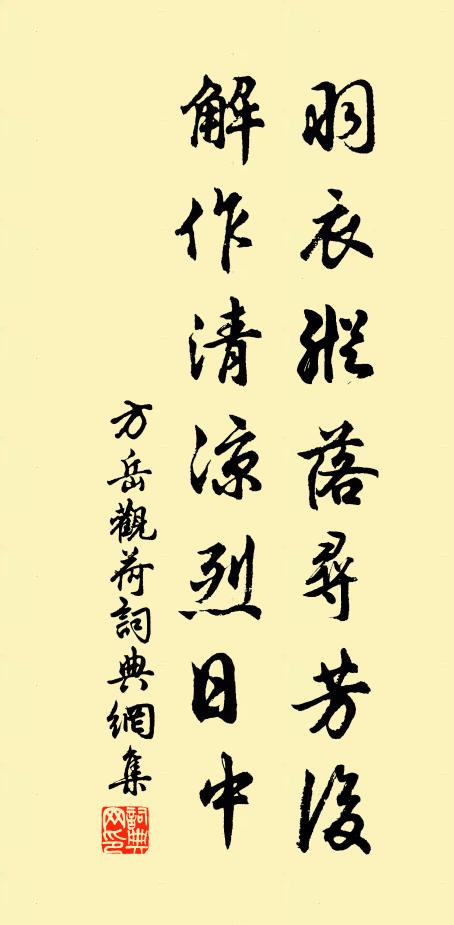 羽衣縱落尋芳後
解作清涼烈日中
方岳觀荷詞典網集
詞典网印